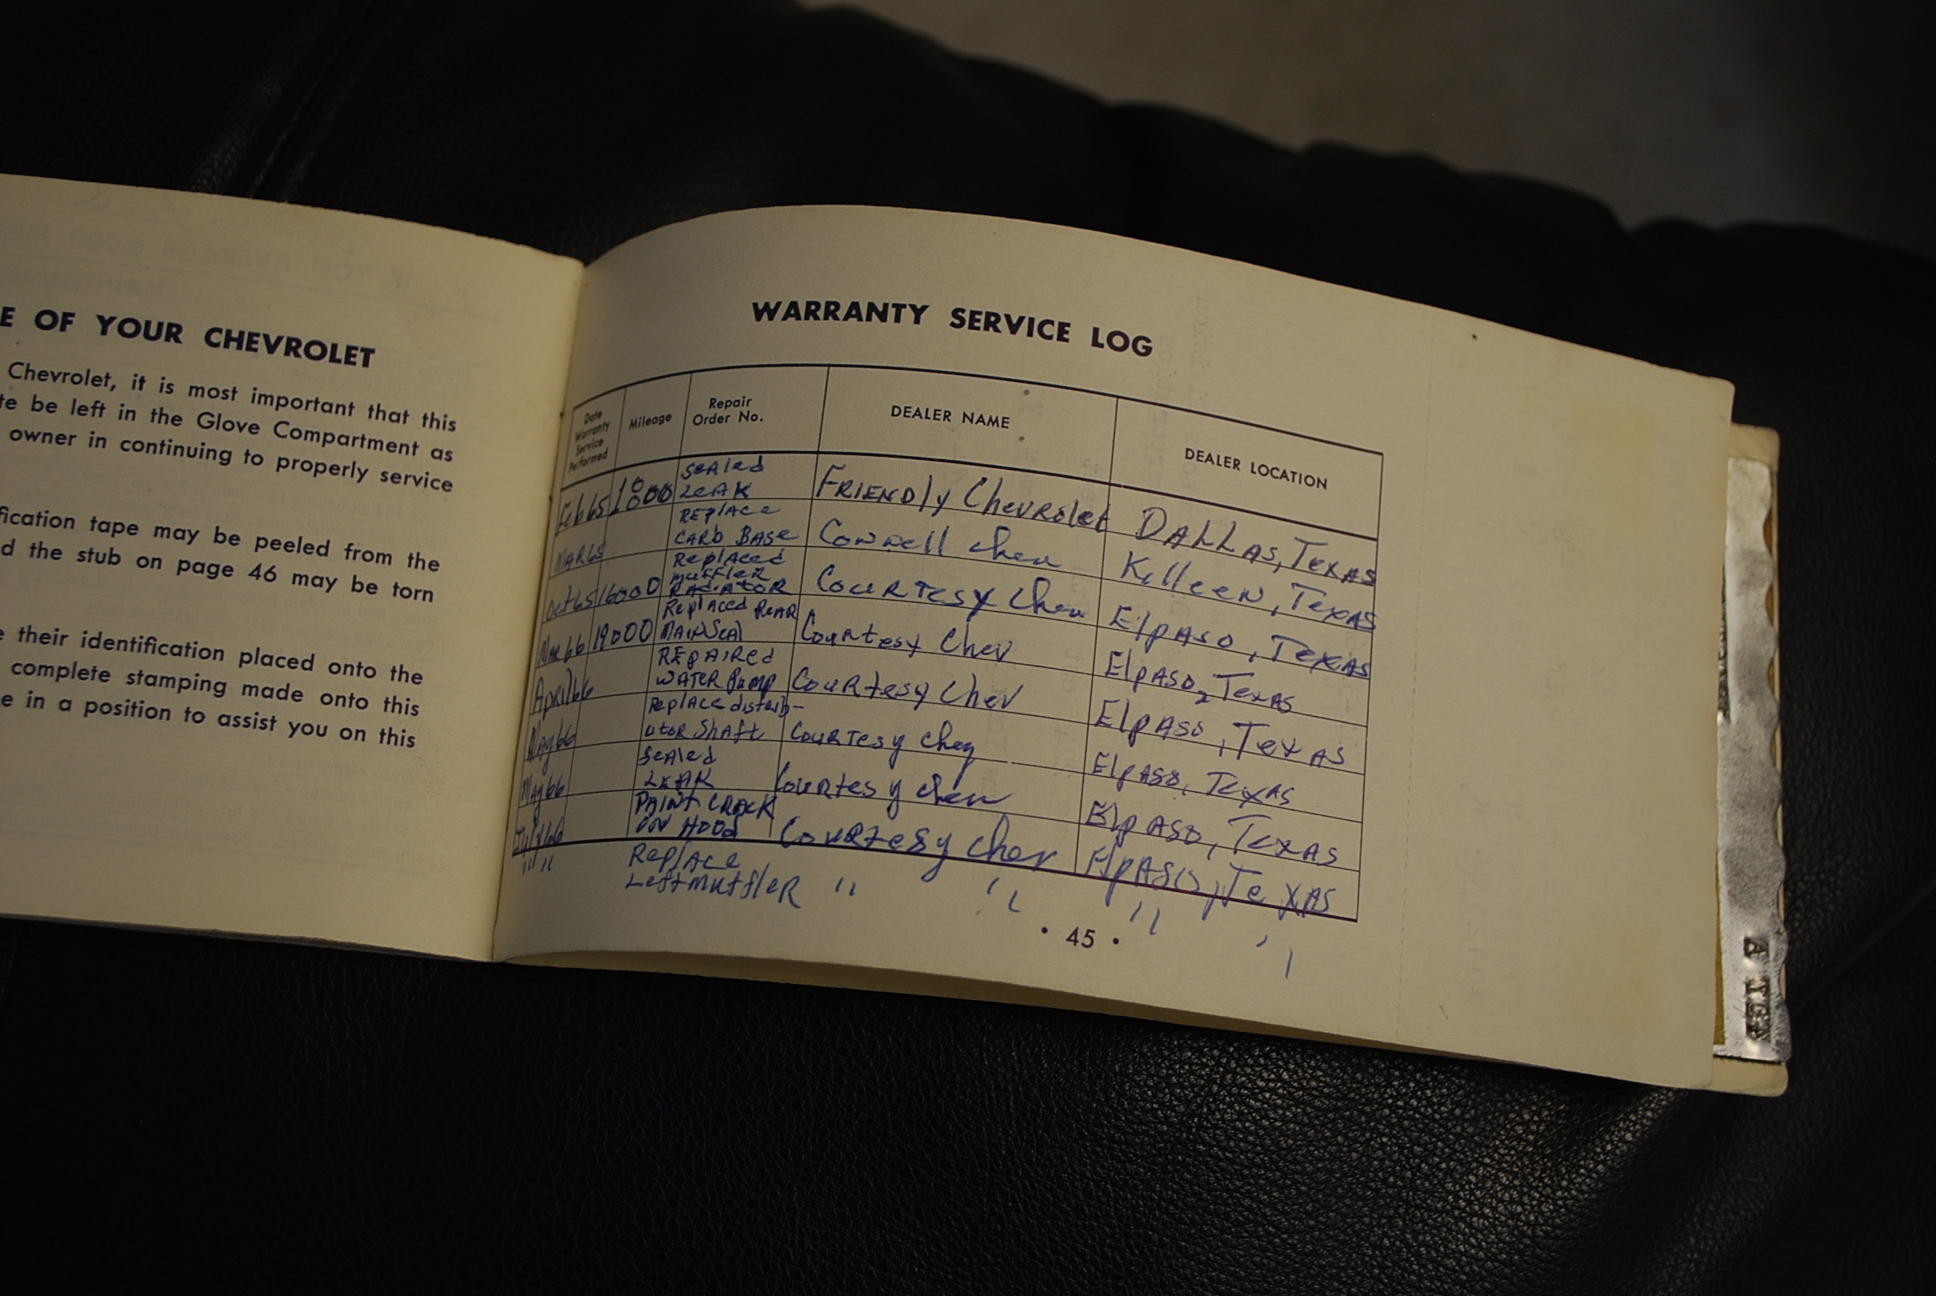 E OF YOUR CHEVROLET
Chevrolet, it is most important that this
te be left in the Glove Compartment as
owner in continuing to properly service
fication tape may be peeled from the
d the stub on page 46 may be torn
e their identification placed onto the
complete stamping made onto this
e in a position to assist you on this
WARRANTY SERVICE LOG
Date Warranty Service Performed Mileage Repair Order No. DEALER NAME DEALER LOCATION
Feb 65 Sealed Leak Friendly Chevrolet Dallas, Texas
Mar 65 Replace Carb Base Connell Chev Killeen, Texas
Oct 65 16000 Replaced muffler Radiator Courtesy Chev Elpaso, Texas
Mar 66 19000 Replaced Rear Main Seal Courtesy Chev Elpaso, Texas
April 66 Repaired Water Pump Courtesy Chev Elpaso, Texas
May 66 Replace distrib-utor Shaft Courtesy Chev Elpaso, Texas
May 66 Sealed Leak Courtesy Chev Elpaso, Texas
July 66 Paint Crack on Hood Courtesy Chev Elpaso, Texas
" " Replace Left muffler " " " "
• 45 •